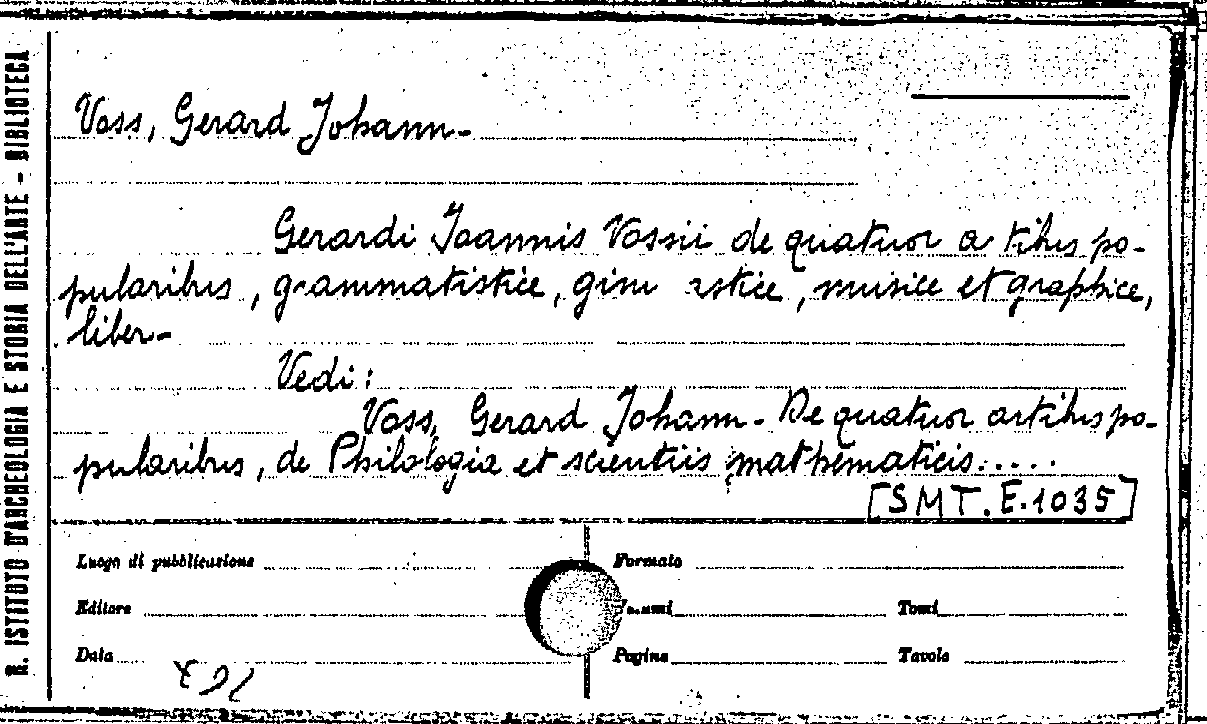 R. ISTITUTO D'ARCHEOLOGIA E STORIA DELL'ARTE - BIBLIOTECA
Voss, Gerard Johann-
Gerardi Joannis Vossii de quatuor a tibus po-
pularibus, grammatistice, gim astice, musice et graphice,
liber-
Vedi:
Voss, Gerard Johann- De quatuor artibus po-
pularibus, de Philologia et scientiis mathematicis.....
[SMT. E. 1035]
Luogo di pubblicazione Formato
Editore Tomi
Data Pagine Tavole